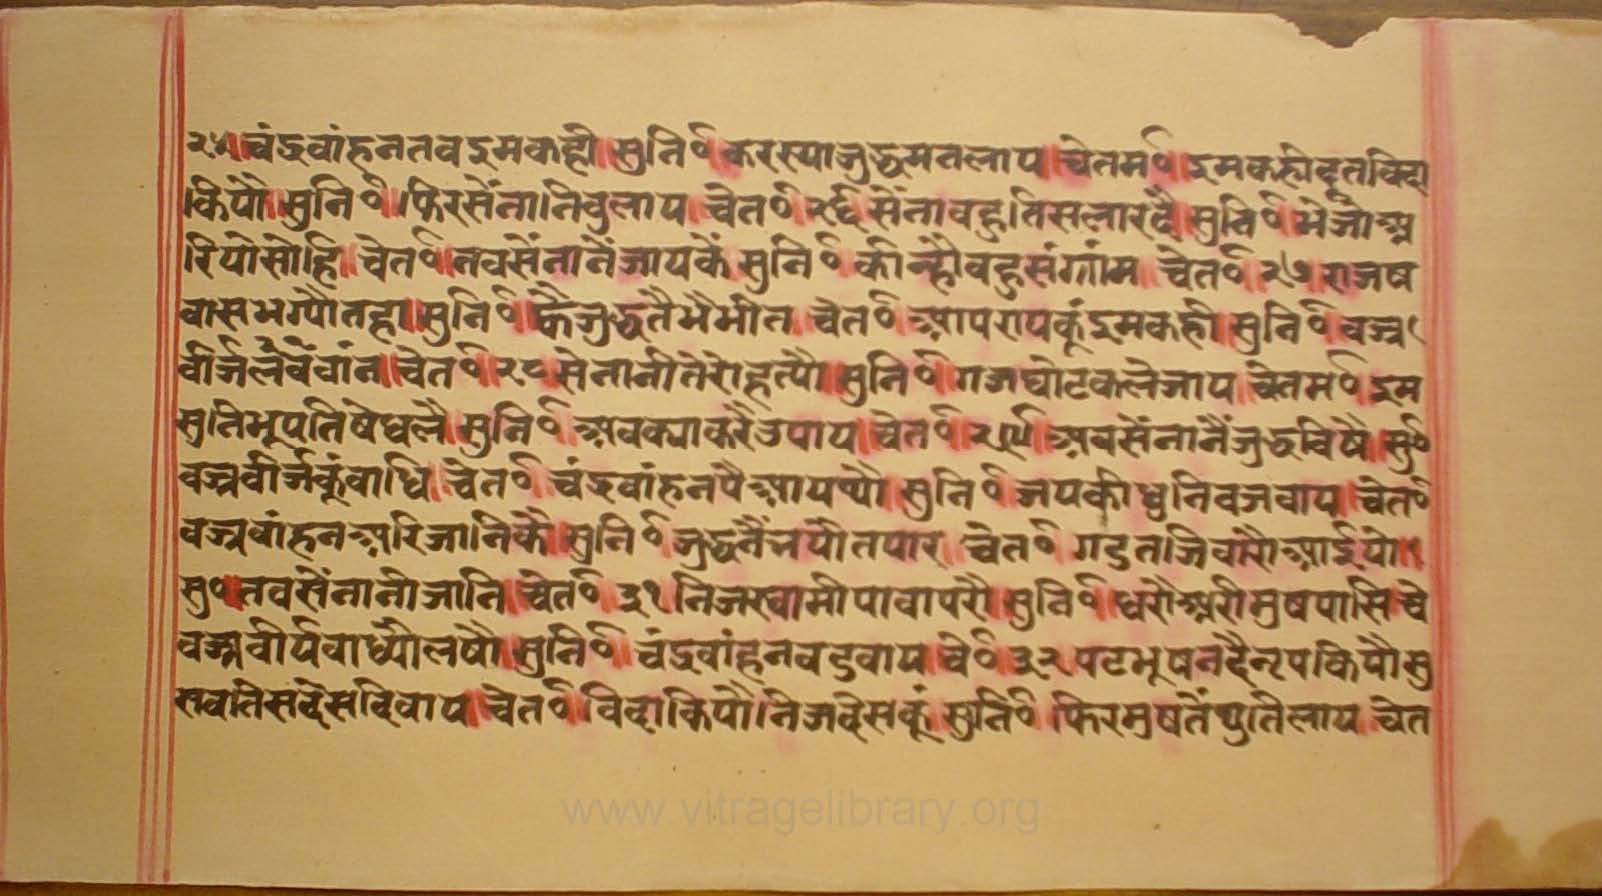 २५॥ चंद्रवांहन तव इम कही॥ सुनि॰॥ करस्या जुद्ध मन लाय॥ चेतम॰॥ इम कही दूत विदा
कियौ॥ सुनि॰॥ फिर सेंना नि वुलाय॥ चेत॰॥ २६ सेंना वहु तिस लार दै॥ सुनि॰॥ भेजौ अ
रि पो सोहि॥ चेत॰॥ तव सेंना नें जाय कें॥ सुनि॰॥ कीन्हौ वहु संग्गांम॥ चेत॰॥ २७ राजष
वास भग्यौ तहा॥ सुनि॰॥ कै जुद्ध तै भैभीत॥ चेत॰॥ आप राय कूं इम कही॥ सुनि॰॥ वज्र
वीर्ज लैवेंवांन॥ चेत॰॥ २८ सेनानी तेरो हत्यौ॥ सुनि॰॥ गज घोटक ले जाय॥ चेतम॰॥ इम
सुनि भूपति षे घलै॥ सुनि॰॥ अव क्या करै उपाय॥ चेत॰॥ २९॥ अव सेंना नैं जुद्ध विषै॥ सु॰
वज्रवीर्ज कूं वाधि॥ चेत॰॥ चंद्रवांहन पै आयप्यौ॥ सुनि॰॥ जय की धुनि वजवाय॥ चेत॰
वज्रवांहन अरि जानिकै॥ सुनि॰॥ जुद्ध नैं पौतपार॥ चेत॰॥ गडुत जिवारौ आईयो॥
सु॰॥ तव सेंनानी जानि॥ चेत॰॥ ३१ निज स्वामी पावा परौ॥ सुनि॰॥ धरौ अरी मुष पासि॥ चे
वज्रवीर्य वाध्यौ लषौ॥ सुनि॰॥ चंद्रवांहन वडुवाय॥ चे॰॥ ३२ पट भूषन दै नृप कियौ॥ सु
सव तिस देस दिवाय॥ चेत॰॥ विदा कियौ निज देस कूं॥ सुनि॰॥ फिर मुष तैं थुति लाय॥ चेत
www.vitragelibrary.org